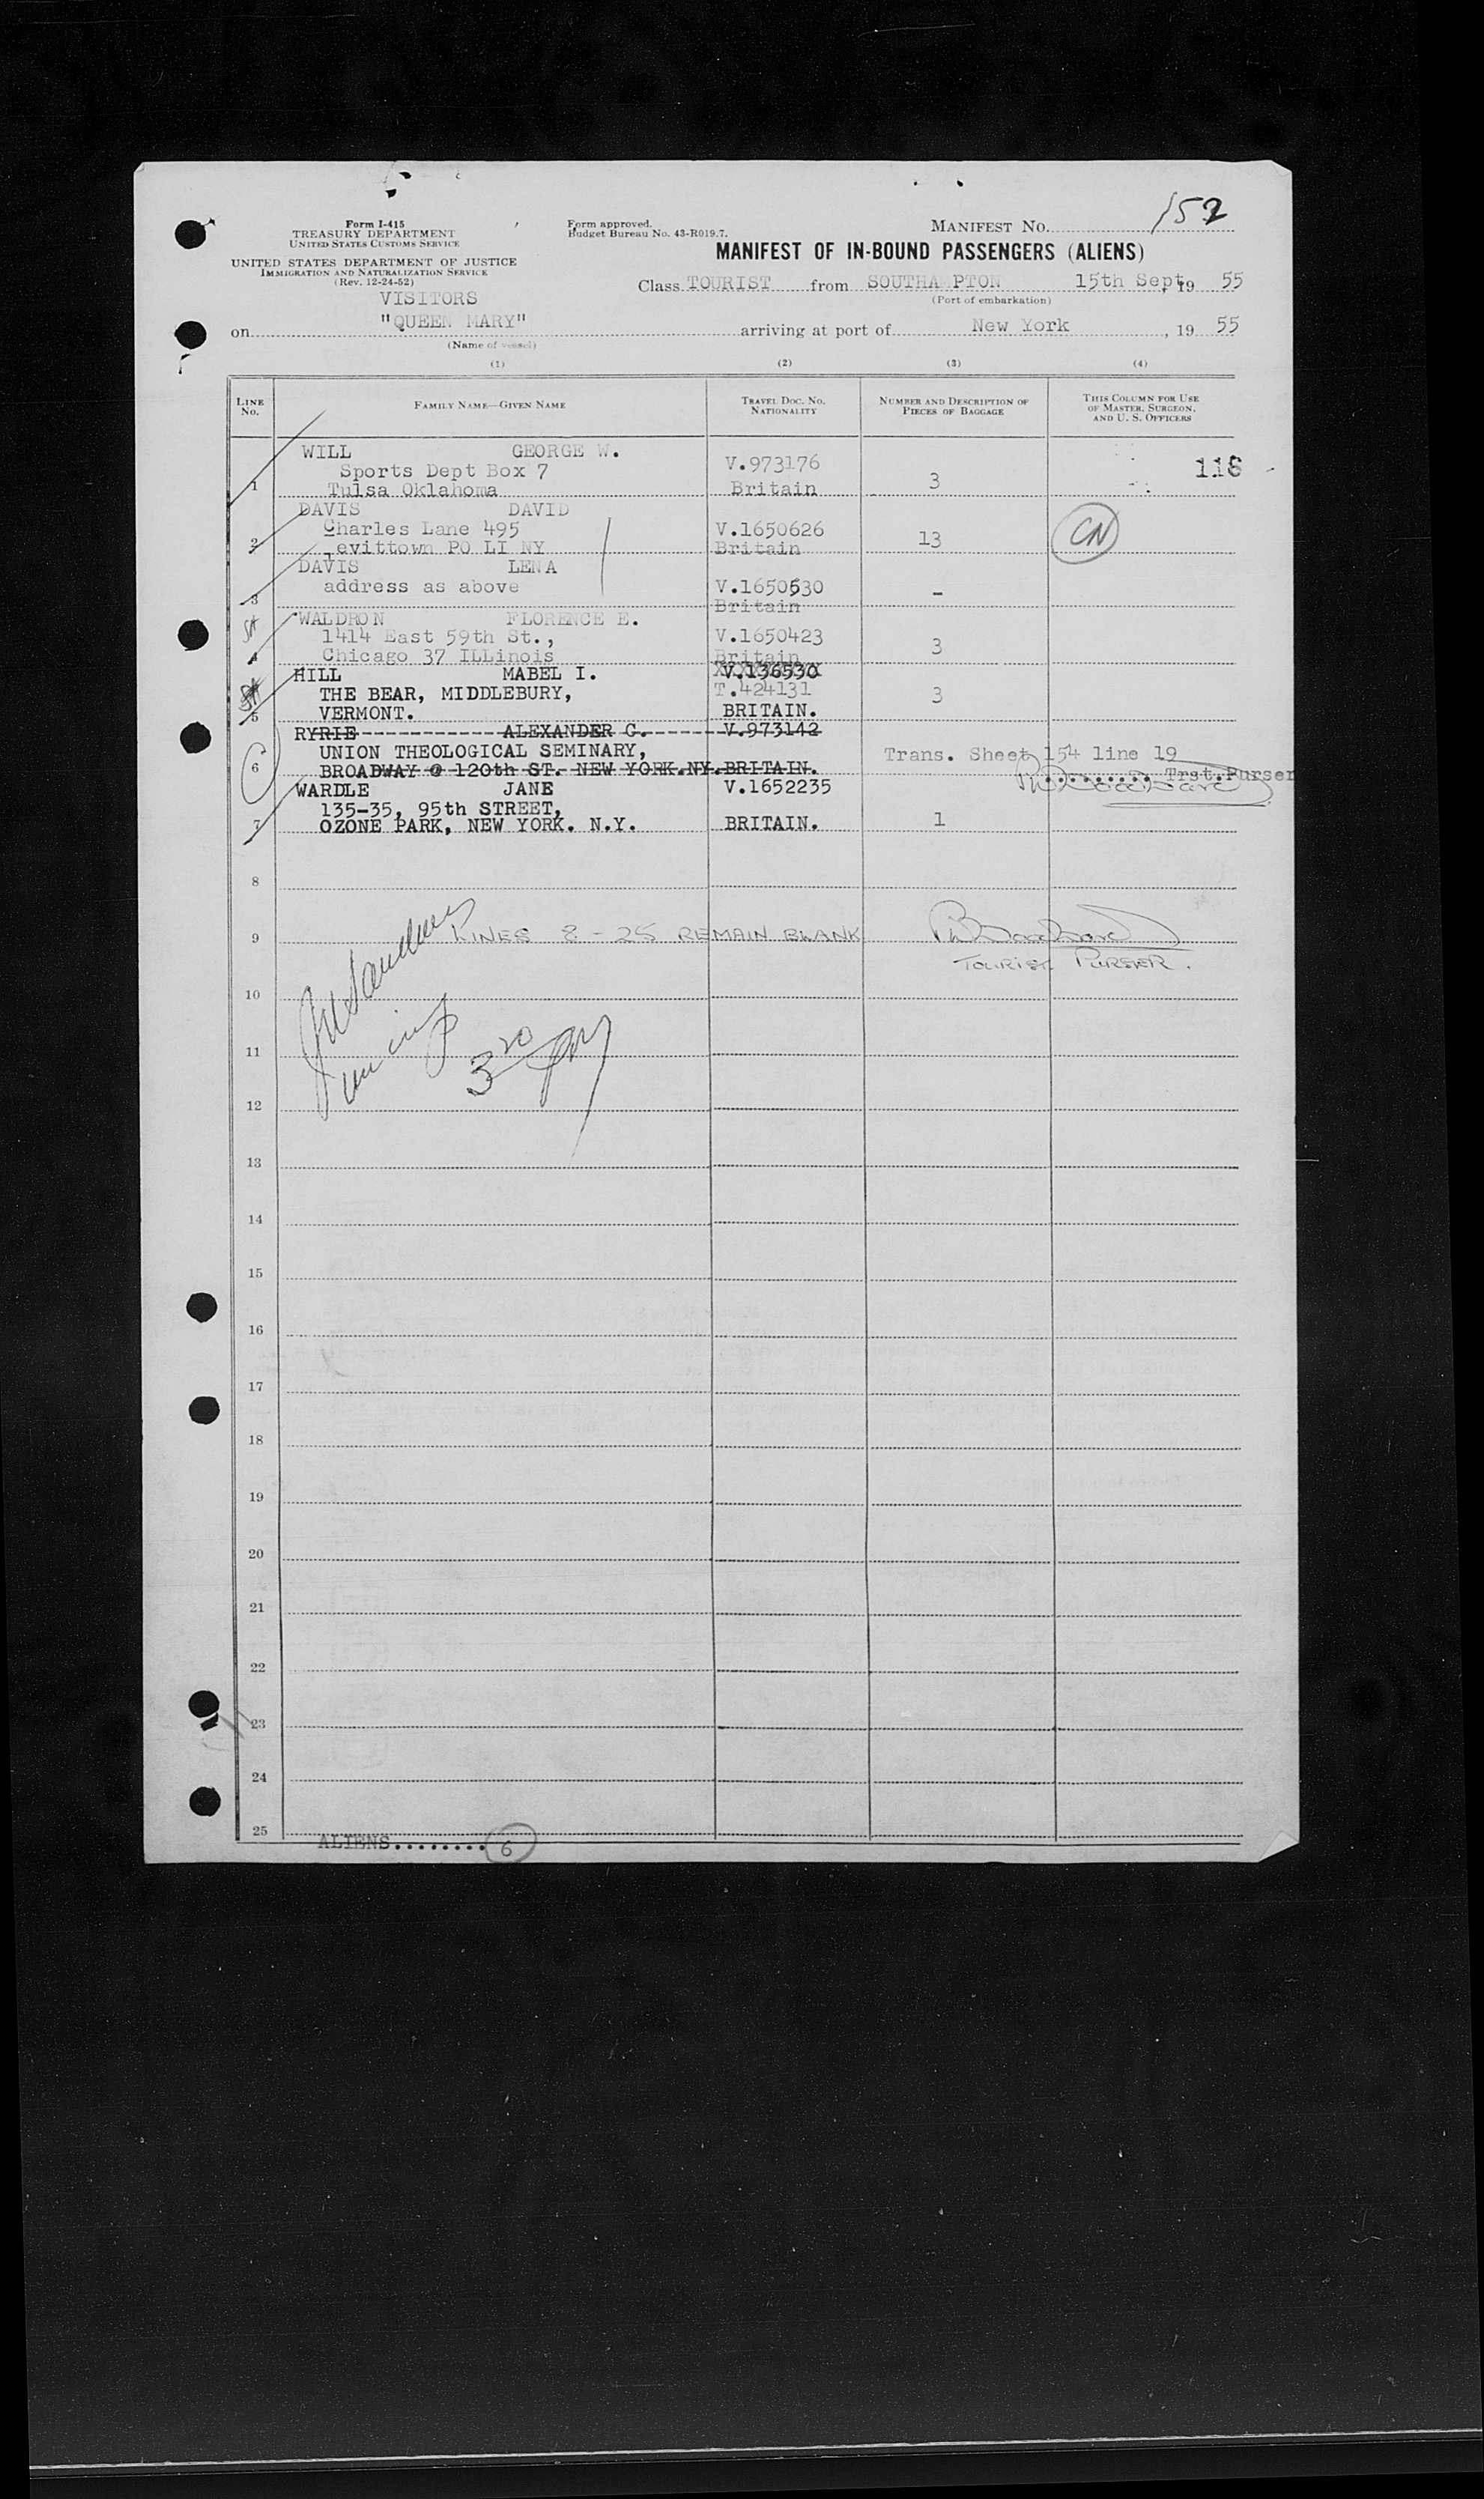 Form I-415
TREASURY DEPARTMENT
UNITED STATES CUSTOMS SERVICE
UNITED STATES DEPARTMENT OF JUSTICE
IMMIGRATION AND NATURALIZATION SERVICE
(Rev. 12-24-52)
VISITORS
Form approved.
Budget Bureau No. 43-R019.7.
MANIFEST NO. 152
MANIFEST OF IN-BOUND PASSENGERS (ALIENS)
Class TOURIST from SOUTHA PTON 15th Sept, 19 55
(Port of embarkation)
on "QUEEN MARY" arriving at port of New York, 19 55
(Name of vessel)
(1) (2) (3) (4)
LINE NO. FAMILY NAME—GIVEN NAME TRAVEL DOC. NO. NATIONALITY NUMBER AND DESCRIPTION OF PIECES OF BAGGAGE THIS COLUMN FOR USE OF MASTER, SURGEON, AND U. S. OFFICERS
WILL GEORGE W.
Sports Dept Box 7 V.973176 118
1 Tulsa Oklahoma Britain 3
DAVIS DAVID
Charles Lane 495 V.1650626
2 Levittown PO LI NY Britain 13 CN
DAVIS LENA
address as above V.1650630 -
3 Britain
WALDRON FLORENCE E.
1414 East 59th St., V.1650423
4 Chicago 37 ILLinois Britain 3
HILL MABEL I. V.136530
THE BEAR, MIDDLEBURY, T.424131 3
5 VERMONT. BRITAIN.
RYRIE ALEXANDER C. V.973142
UNION THEOLOGICAL SEMINARY, Trans. Sheet 154 line 19
6 BROADWAY @ 120th ST. NEW YORK.NY. BRITAIN. Trst.Purser
WARDLE JANE V.1652235
135-35, 95th STREET,
7 OZONE PARK, NEW YORK. N.Y. BRITAIN. 1
8
9 LINES 8 - 25 REMAIN BLANK
TOURIST PURSER.
10
11
3 20 PM
12
13
14
15
16
17
18
19
20
21
22
23
24
25
ALIENS........ 6